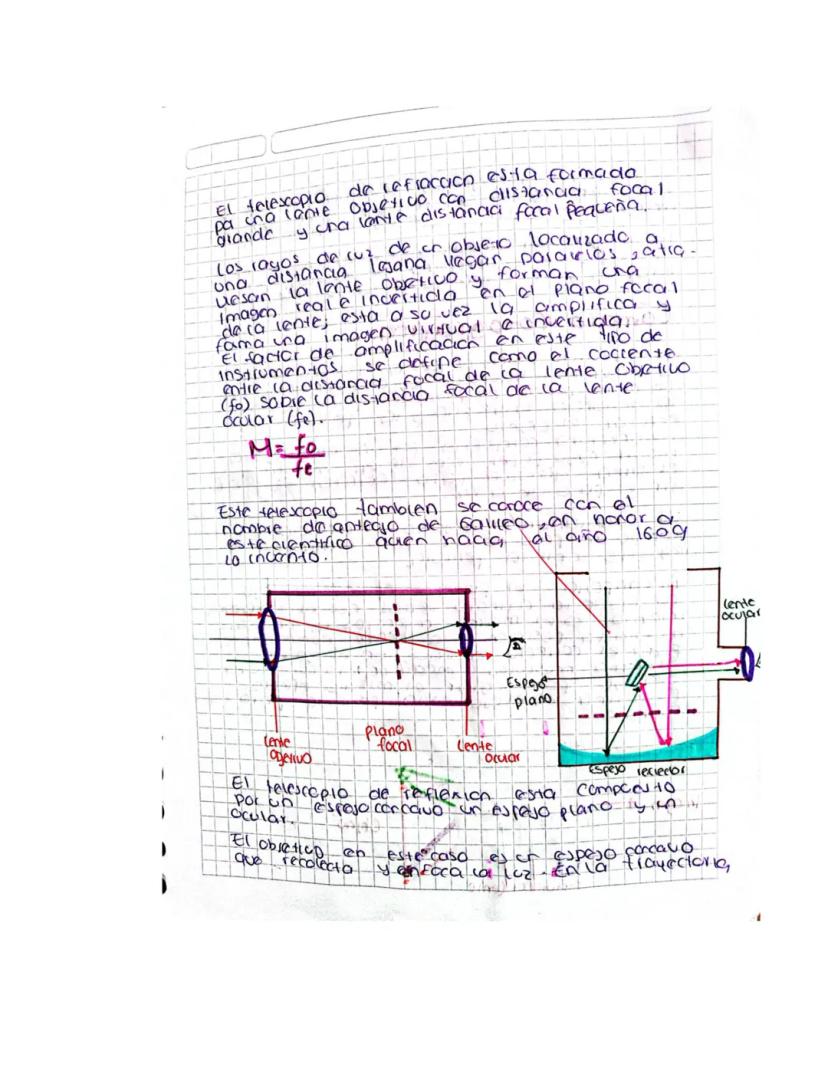 El telescopio de refraccion esta formado
por una lente objetivo con distancia focal
grande y una lente distancia focal Pequeña.
Los rayos de luz de un objeto localizado a
una distancia lejana llegan paralelos, atra-
viesan la lente objetivo y forman una
imagen real e invertida en el plano focal
de la lente; esta a su vez la amplifica y
forma una imagen virtual e invertida.
El factor de amplificacion en este tipo de
instrumentos se define como el cociente
entre la distancia focal de la lente objetivo
(fo) sobre la distancia focal de la lente
ocular (fe).
M = fo
fe
Este telescopio tambien se conoce con el
nombre de anteojo de Galileo, en honor a
este cientifico quien hacia al año 1609
lo invento.
lente
ocular
Espejo
plano
lente
objetivo
plano
focal
lente
ocular
Espejo reclector
El telescopio de reflexion esta compuesto
por un espejo concavo un espejo plano y un
ocular.
El objetivo en este caso es un espejo concavo
que recolecta y enfoca la luz. En la trayectoria,